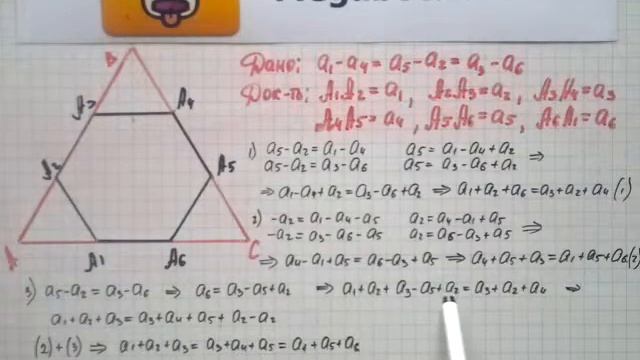 Дано: a₁-a₄=a₅-a₂=a₃-a₆
Док-ть: A₁A₂=a₁, A₂A₃=a₂, A₃A₄=a₃
A₄A₅=a₄, A₅A₆=a₅, A₆A₁=a₆
B
A3
A4
A2
A5
A
A1
A6
C
1) a₅-a₂=a₁-a₄ a₅=a₁-a₄+a₂
a₅-a₂=a₃-a₆ a₅=a₃-a₆+a₂ ⇒
⇒ a₁-a₄+a₂=a₃-a₆+a₂ ⇒ a₁+a₂+a₆=a₃+a₂+a₄ (1)
2) -a₂=a₁-a₄-a₅ a₂=a₄-a₁+a₅
-a₂=a₃-a₆-a₅ a₂=a₆-a₃+a₅ ⇒
⇒ a₄-a₁+a₅=a₆-a₃+a₅ ⇒ a₄+a₅+a₃=a₁+a₅+a₆ (2)
3) a₅-a₂=a₃-a₆ ⇒ a₆=a₃-a₅+a₂ ⇒ a₁+a₂+a₃-a₅+a₂=a₃+a₂+a₄ ⇒
a₁+a₂+a₃=a₃+a₄+a₅+a₂-a₂
(2)+(3) ⇒ a₁+a₂+a₃=a₃+a₄+a₅=a₁+a₅+a₆